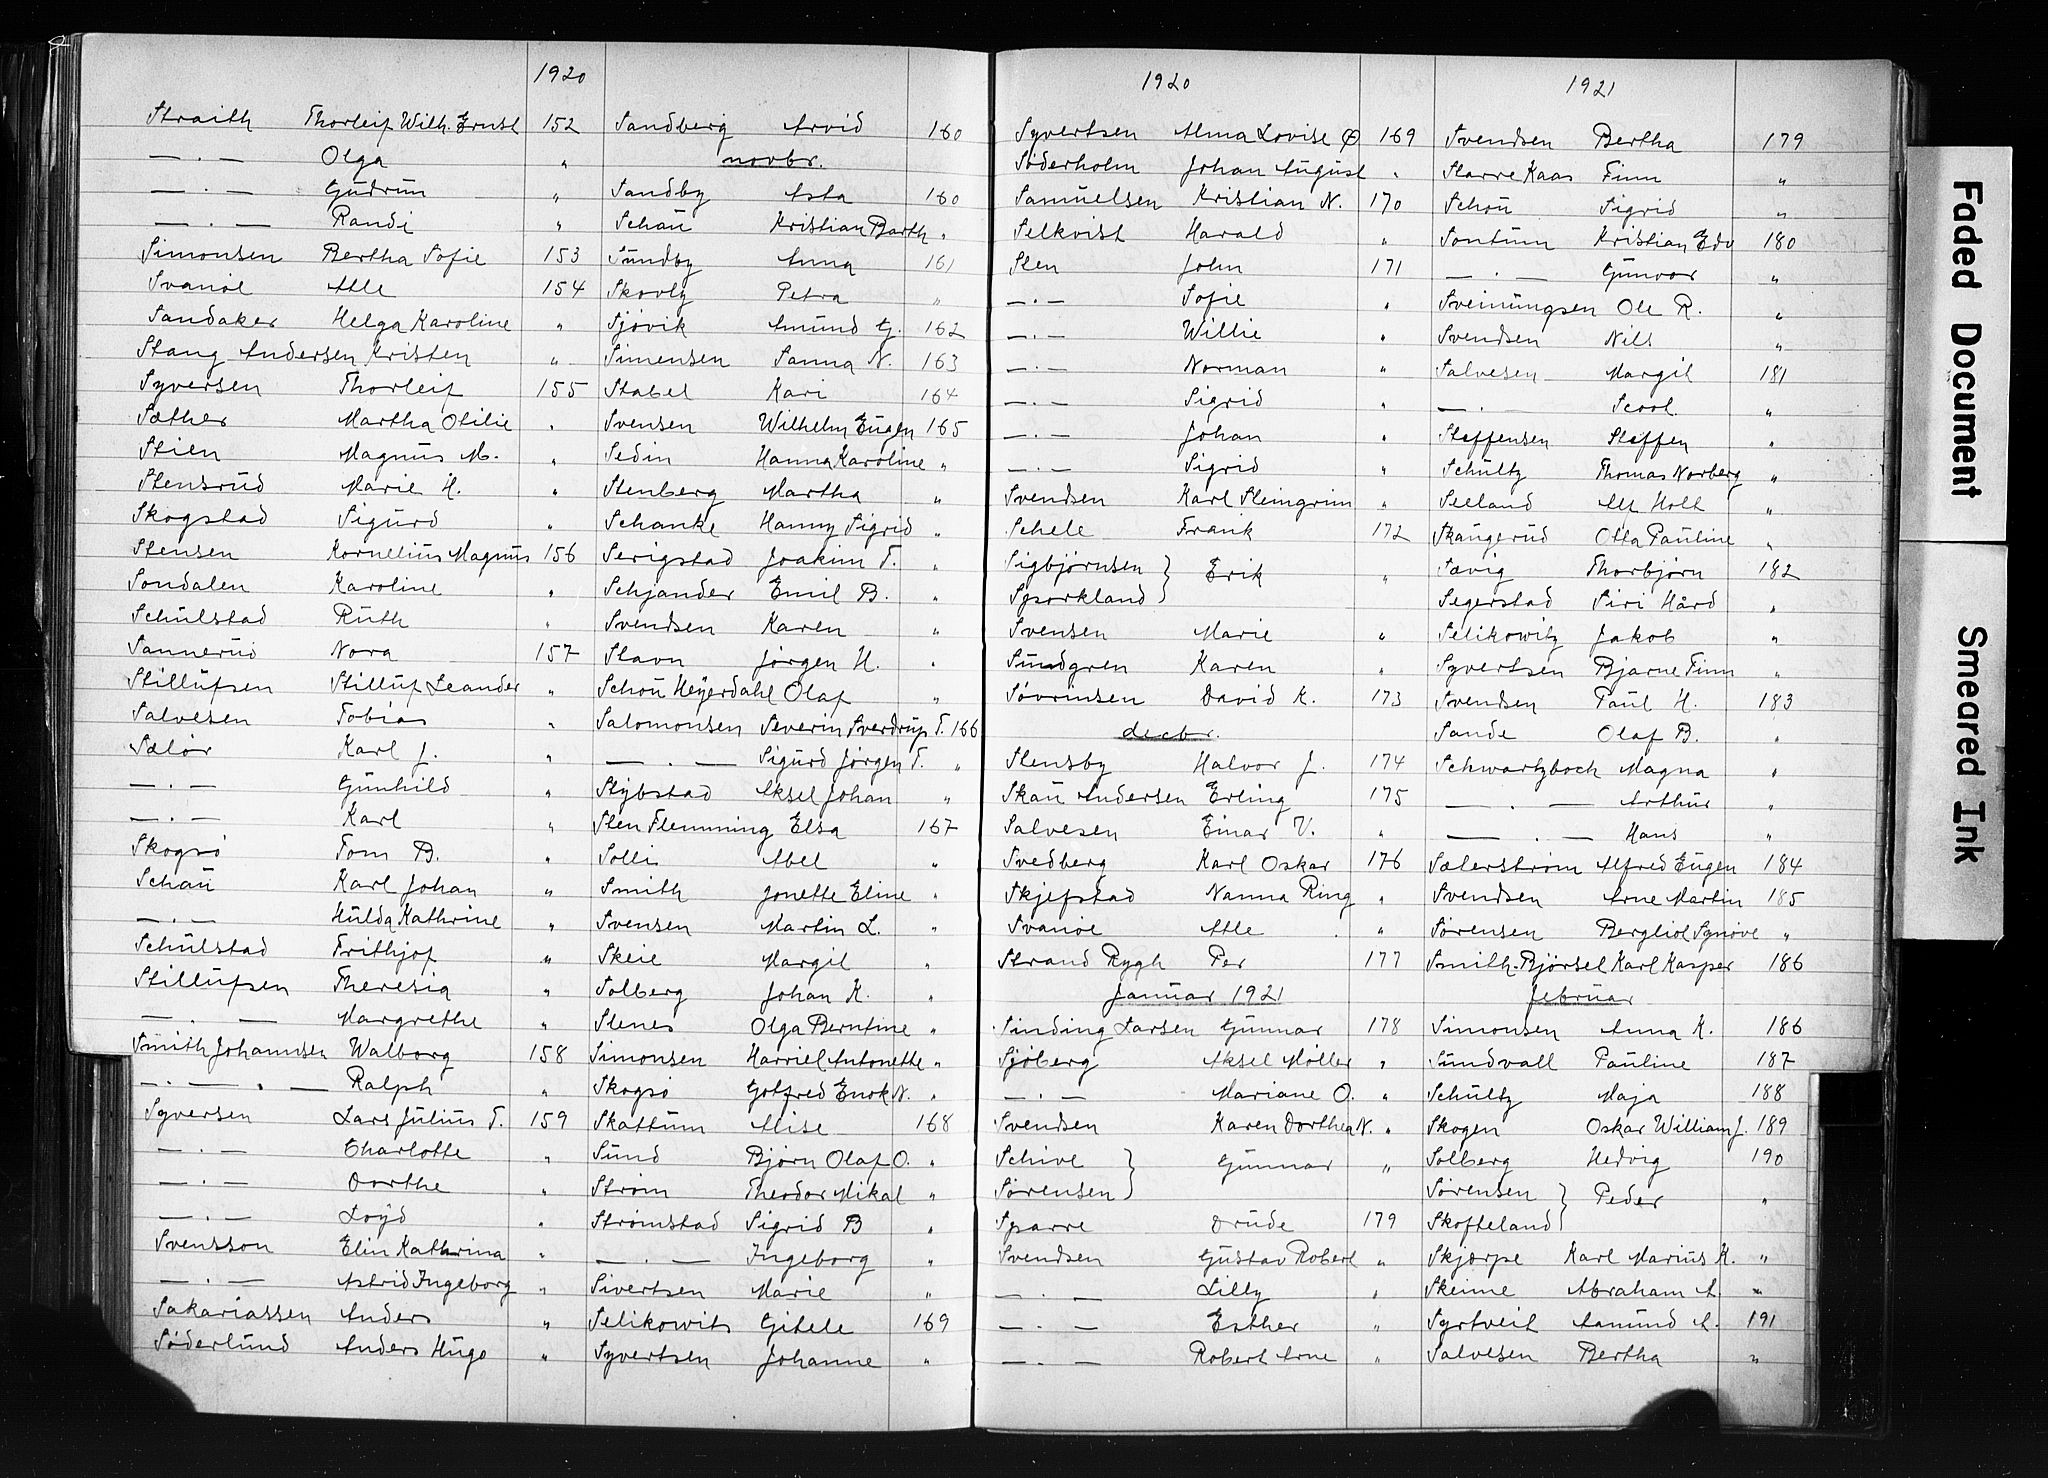 1920
Straith Thorleif Wilh. Ernst 152
— . — Olga "
— . — Gudrun "
— . — Randi "
Simonsen Bertha Sofie 153
Svanøe Atle 154
Sandaker Helga Karoline "
Stang Andersen Kristen "
Syversen Thorleif 155
Sæther Martha Otilie "
Stien Magnus M. "
Stensrud Marie H. "
Skogstad Sigurd "
Stensen Kornelius Magnus 156
Sondalen Karoline "
Schulstad Ruth "
Sannerud Nora 157
Stillufsen Stilluf Leander "
Salvesen Tobias "
Sælør Karl J. "
— . — Gunhild "
— . — Karl "
Skogsø Tom B. "
Schau Karl Johan "
— . — Hulda Kathrine "
Schulstad Frithjof "
Stillufsen Theresia "
— . — Margrethe "
Smith Johannsen Walborg 158
— . — . — Ralph "
Syversen Lars Julius T. 159
— . — Charlotte "
— . — Dorthe "
— . — Loyd "
Svensson Elin Kathrina "
— . — Astrid Ingeborg "
Sakariassen Anders "
Søderlund Anders Hugo "
Sandberg Arvid 160
novbr.
Sandby Asta 160
Schau Kristian Barth "
Sundby Anna 161
Skovly Petra "
Sjøvik Amund G. 162
Simensen Sanna N. 163
Stabel Kari 164
Svensen Wilhelm Eugen 165
Sedin Hanna Karoline "
Stenberg Martha "
Schanke Hanny Sigrid "
Serigstad Joakim T. "
Schjander Emil B. "
Svendsen Karen "
Stavn Jørgen H. "
Schou Heyerdahl Olaf "
Salomonsen Severin Sverdrup T. 166
— . — Sigurd Jørgen T. "
Stybstad Aksel Johan "
Sten Flemming Elsa 167
Solli Abel "
Smith Jonette Eline "
Svensen Martin L. "
Skeie Margit "
Solberg Johan K. "
Stenes Olga Berntine "
Simonsen Harriet Antonette "
Skogsø Gotfred Enok N. "
Skattum Alise 168
Sund Bjørn Olaf O. "
Strøm Theodor Mikal "
Strømstad Sigrid B "
— . — Ingeborg "
Sivertsen Marie "
Selikowits Gitele 169
Syvertsen Johanne "
1920
Syvertsen Alma Lovise O 169
Søderholm Johan August "
Samuelsen Kristian N. 170
Selkvist Harald "
Sten John 171
— . — Sofie "
— . — Willie "
— . — Norman "
— . — Sigrid "
— . — Johan "
— . — Sigrid "
Svendsen Karl Steingrim "
Schele Frank 172
Sigbjørnsen } Erik "
Sporkland }
Svensen Marie "
Sundgren Karen "
Søvrinsen David K. 173
decbr.
Stensby Halvor J. 174
Skau Andersen Erling 175
Salvesen Einar V. "
Svedberg Karl Oskar 176
Skjefstad Nanna Ring "
Svanøe Atle "
Strand Rygh Per 177
Januar 1921
Sinding Larsen Gunnar 178
Sjøberg Aksel Møller "
— . — Mariane O. "
Svendsen Karen Dorthea N. "
Schive } Gunnar "
Sørensen }
Sparre Drude 179
Svendsen Gustav Robert "
— . — Lilly "
— . — Esther "
— . — Robert Arne "
1921
Svendsen Bertha 179
Starre Kaas Finn "
Schou Sigrid "
Sontum Kristian Edv 180
— . — Gunvor "
Sveinungsen Ole R. "
Svendsen Nils "
Salvesen Margit 181
— . — "
Steffensen Steffen "
Schultz Thomas Norberg "
Seeland Alf Holt "
Skangerud Otta Pauline "
Sævig Thorbjørn 182
Segerstad Siri Hård "
Selikowitz Jakob "
Syvertsen Bjarne Finn "
Svendsen Paul H. 183
Sande Olaf B. "
Schwartzboch Magna "
— . — Arthur "
— . — Hans "
Sælerstrøm Alfred Eugen 184
Svendsen Arne Martin 185
Sørensen Bergliot Synøve "
Smith-Bjørsel Karl Kasper 186
februar
Simonsen Anna K. 186
Sundvall Pauline 187
Schultz Maja 188
Skogen Oskar William J. 189
Solberg Hedvig 190
Sørensen } Peder "
Skofteland }
Skjærpe Karl Marius K. "
Skeime Abraham A. "
Syrtveit Aamund A. 191
Salvesen Bertha "
Faded Document
Smeared Ink